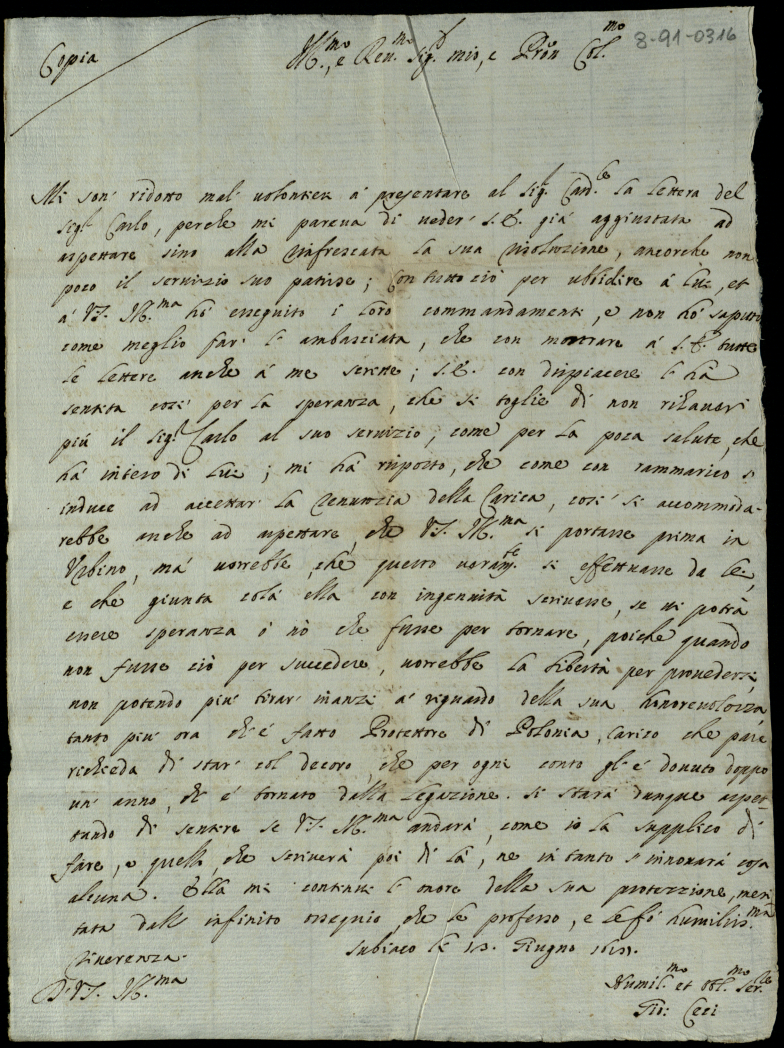 8-91-0316
Copia
Ill.mo, e Reu.mo Sig.r mio, e Pron Col.mo
Mi son' ridotto mal' uolontieri à presentare al Sig.r Card.le la lettera del
Sig.r Carlo, perche mi pareua di ueder' S.E. già aggiustata ad
aspettare sino alla rinfrescata la sua risoluzione, ancorche non
poco il seruizio suo patisse; Con tutto ciò per ubbidire à Lui, et
à V.S. Ill.ma hò esseguito i loro commandamenti, e non hò saputo
come meglio far' l'ambasciata, che con mostrare à S.E. tutte
le lettere anche à me scritte; S.E. con dispiacere l'hà
sentita così per la speranza, che si toglie di non rihauer
più il Sig.r Carlo al suo seruizio, come per la poca salute, che
hà inteso di Lui; mi hà risposto, che come con rammarico s'
induce ad accettar' la renunzia della Carica, così si accommoda-
rebbe anche ad aspettare, che V.S. Ill.ma si portasse prima in
Vrbino, mà uorrebbe, che questo uoram.te si effettuasse da lei,
e che giunta colà ella con ingenuità scriuesse, se ui potrà
essere speranza ò nò che fusse per tornare, poiche quando
non fusse ciò per succedere, uorrebbe la libertà per prouedersi,
non potendo più tirar' inanzi à riguardo della sua honoreuolezza,
tanto più ora ch'è fatto Protettore di Polonia, carico che pare
richieda di star' col decoro, che per ogni conto gl'è douuto doppo
un' anno, ch' è tornato dalla Legazione. Si starà dunque aspet-
tando di sentire se V.S. Ill.ma andarà, come io la supplico di
fare, e quello, che scriuerà poi di là, ne in tanto s'innouarà cosa
alcuna. Ella mi continui l'onore della sua protezzione, meri-
tata dall' infinito ossequio, che le professo, e le fò humiliss.ma
riuerenza. Subiaco li Giugno
D. V.S. Ill.ma Humil.mo et Obl.mo Ser.le
Gio: Ceci